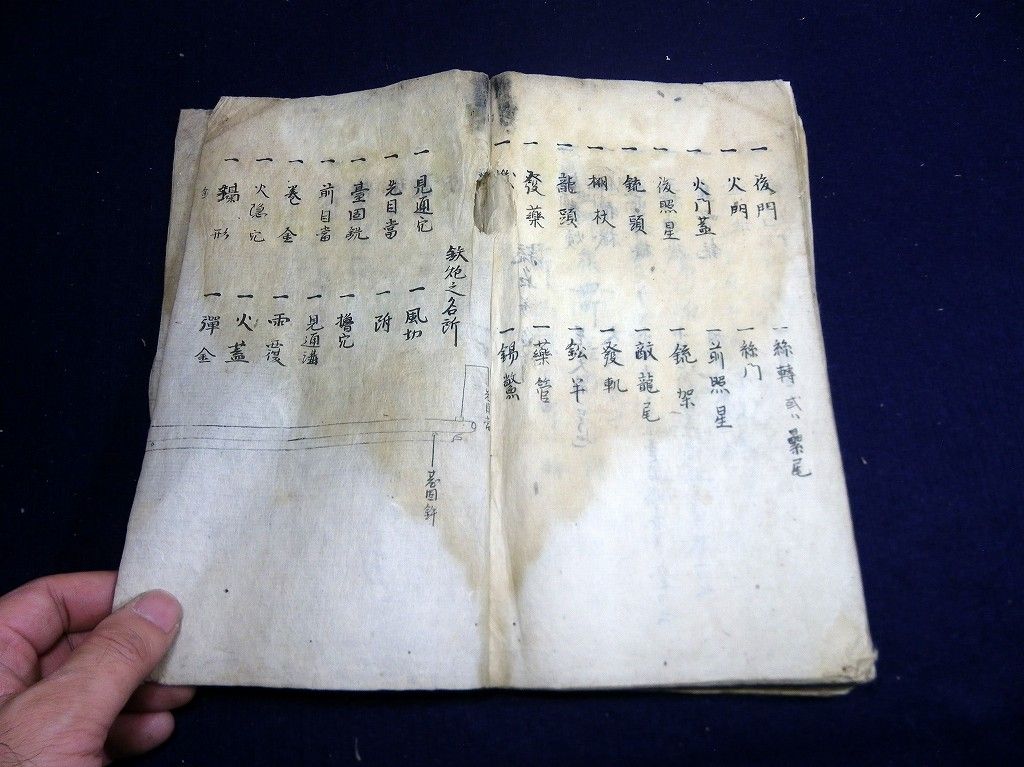 一 後門
一 火門
一 火門蓋
一 後照星
一 銃頭
一 棚杖
一 龍頭
一 發藥
一
一 絲轉 或ハ 纍尾
一 絲門
一 前照星
一 銃架
一 敵龍尾
一 發軌
一 鈆半
一 藥管
一 錫鱉
鉄炮之名所
一 見通穴
一 先目當
一 臺固
一 前目當
一 巻金
一 火隠穴
一 形
一 風切
一
一 穴
一 見通溝
一 雨覆
一 火蓋
一 彈金
臺固